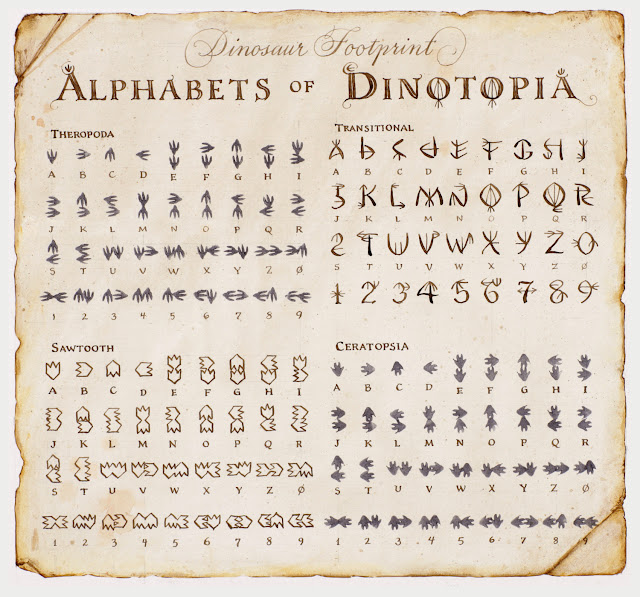 Dinosaur Footprint
ALPHABETS OF DINOTOPIA
THEROPODA
A B C D E F G H I
J K L M N O P Q R
S T U V W X Y Z Ø
1 2 3 4 5 6 7 8 9
TRANSITIONAL
A B C D E F G H I
A B C D E F G H I
J K L M N O P Q R
J K L M N O P Q R
S T U V W X Y Z O
S T U V W X Y Z Ø
1 2 3 4 5 6 7 8 9
SAWTOOTH
A B C D E F G H I
J K L M N O P Q R
S T U V W X Y Z Ø
1 2 3 4 5 6 7 8 9
CERATOPSIA
A B C D E F G H I
J K L M N O P Q R
S T U V W X Y Z Ø
1 2 3 4 5 6 7 8 9